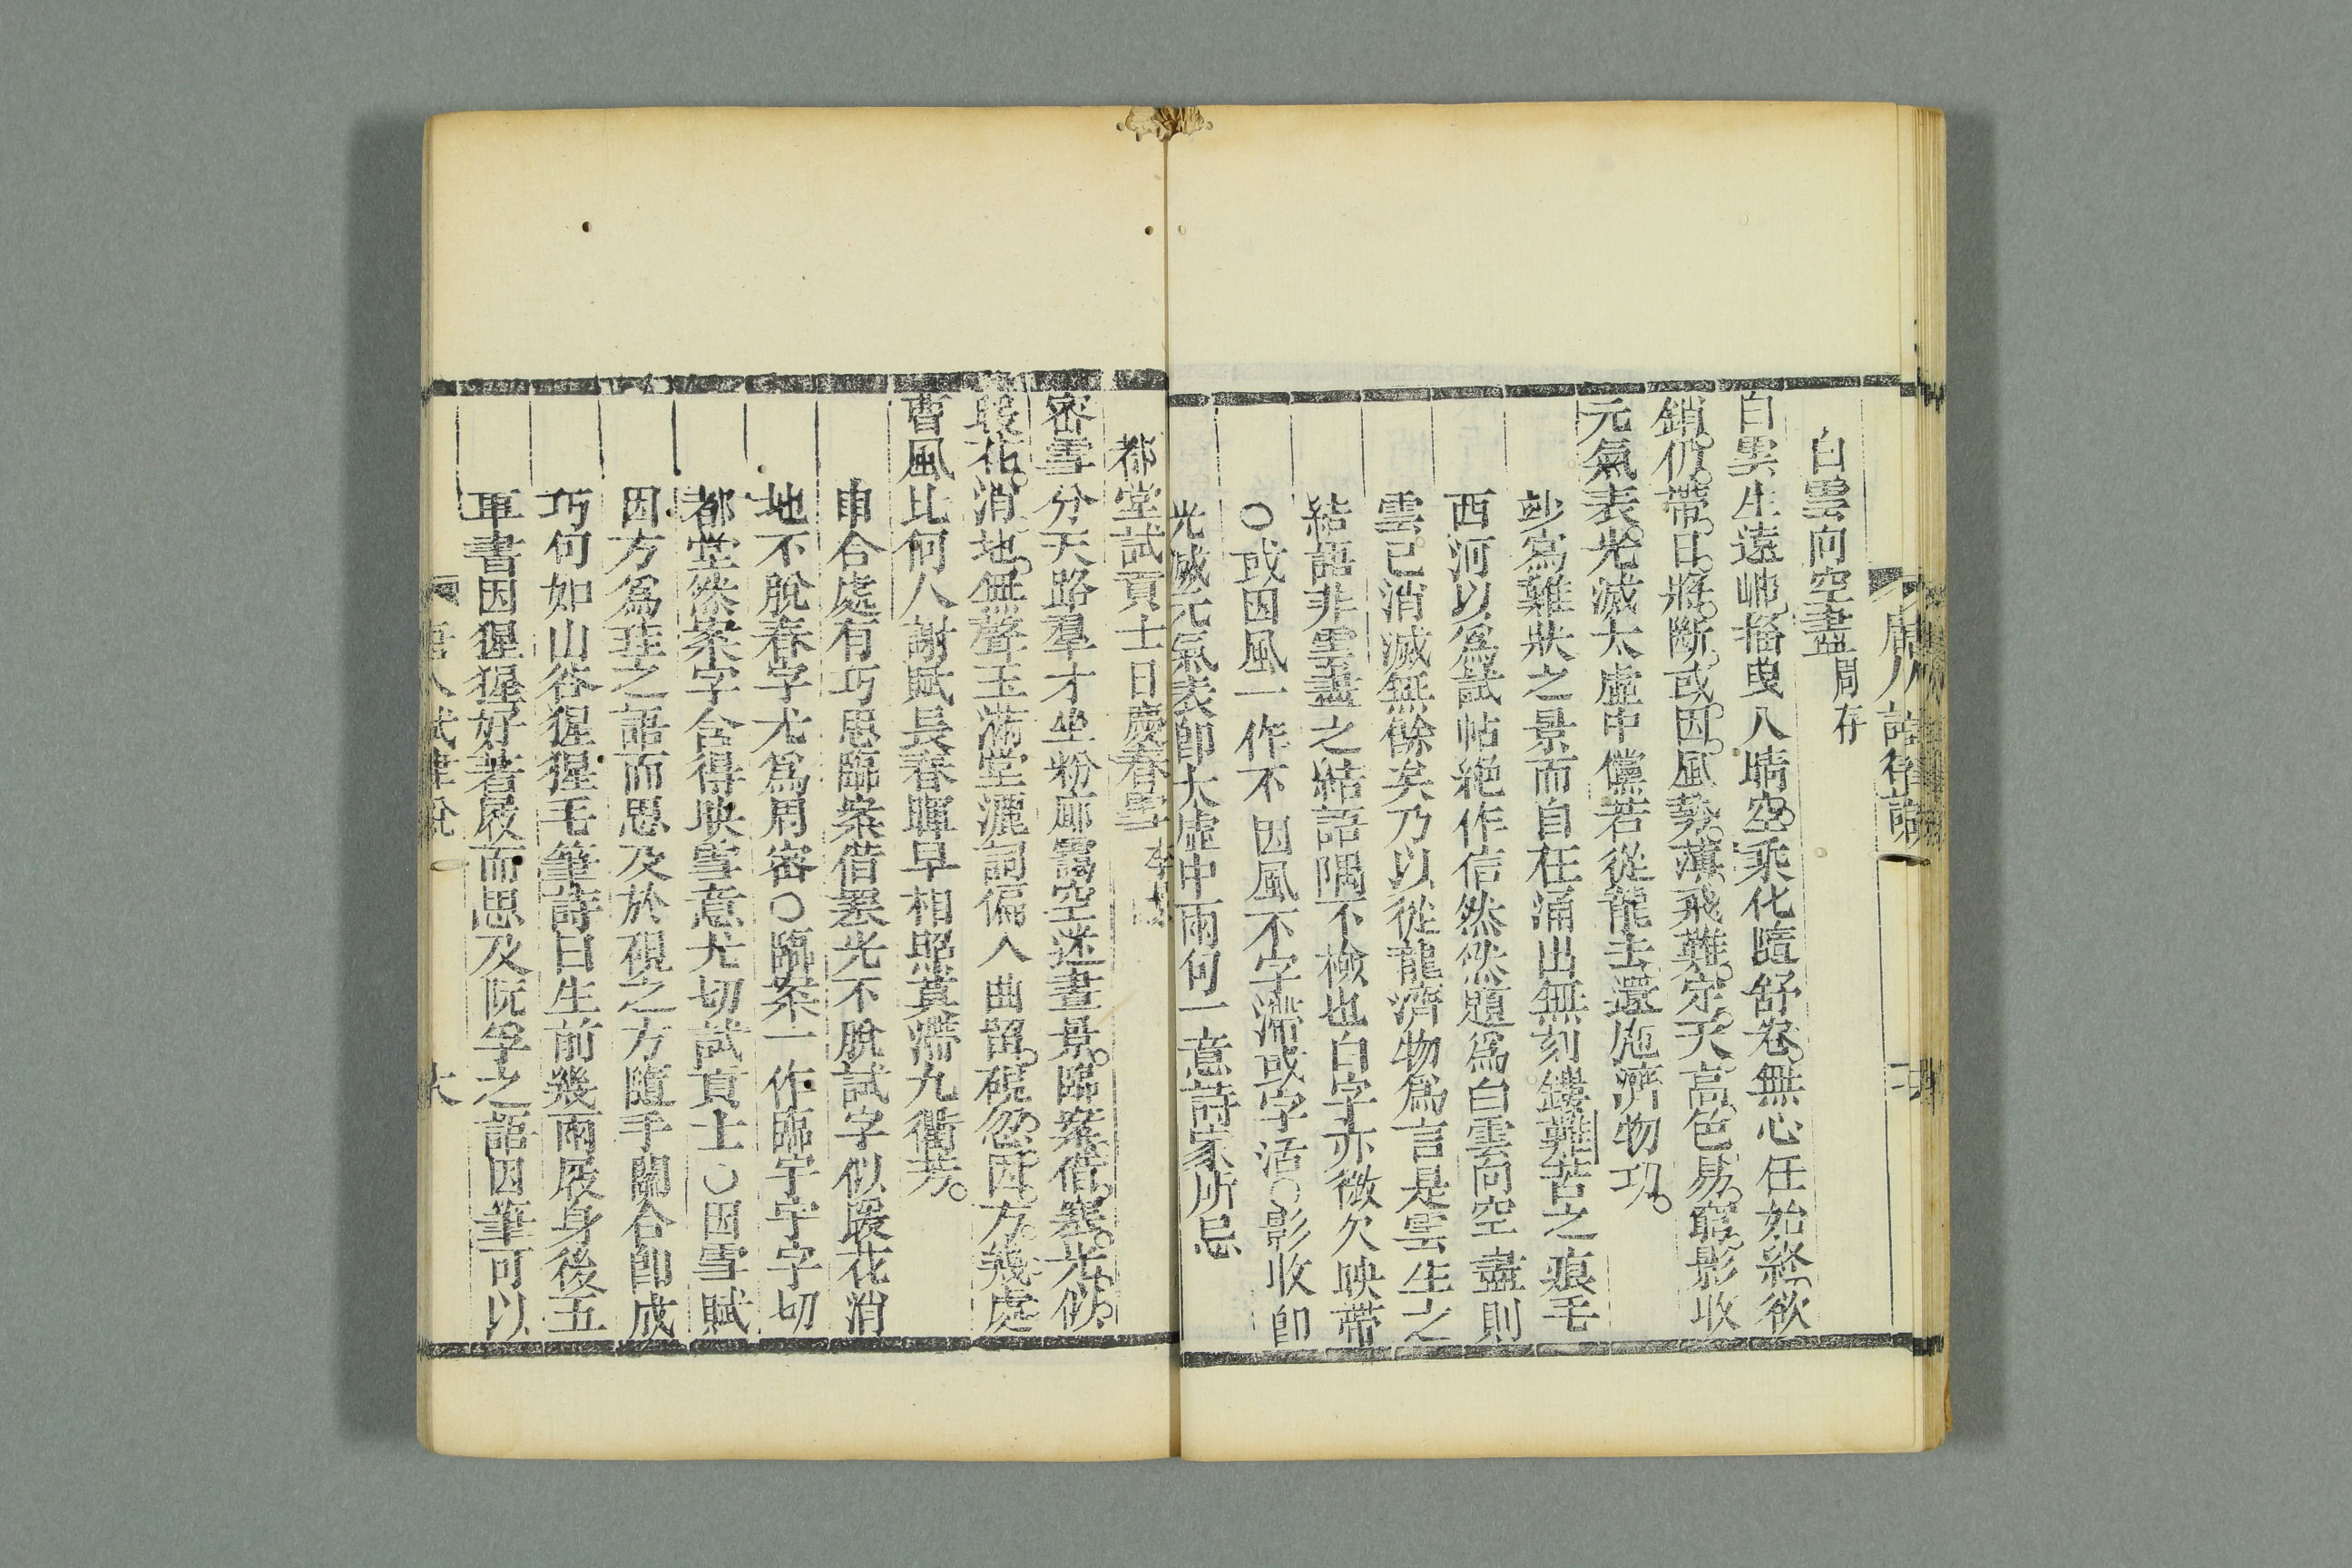 白雲向空盡周存
白雲生遠岫搖曳入晴空乘化隨舒卷無心任始終欲
銷仍帶日將斷或因風勢薄飛難定天高色易窮影收
元氣表光滅太虛中儻若從龍去還施濟物功
妙寫難狀之景而自在涌出無刻鏤艱苦之痕毛
西河以爲試帖絕作信然然題爲白雲向空盡則
雲已消滅無餘矣乃以從龍濟物爲言是雲生之
結語非雲盡之結語隅不檢也白字亦微欠映帶
○或因風一作不因風不字滯或字活○影收即
光滅元氣表即太虛中兩句一意詩家所忌
都堂試貢士日慶春雪李
密雪分天路羣才坐粉廊靄空迷晝景臨案借寒光似
暖花消地無聲玉滿堂灑詞偏入曲留硯忽因方幾處
曹風比何人謝賦長春暉早相照莫滯九衢芳
串合處有巧思臨案借寒光不脫試字似暖花消
地不脫春字尤爲周密○臨案一作臨宇宇字切
都堂然案字合得映雪意尤切試貢士○因雪賦
因方爲珪之語而思及於硯之方隨手關合即成
巧句如山谷猩猩毛筆詩曰生前幾兩屐身後五
車書因猩猩好著屐而思及阮孚之語因筆可以